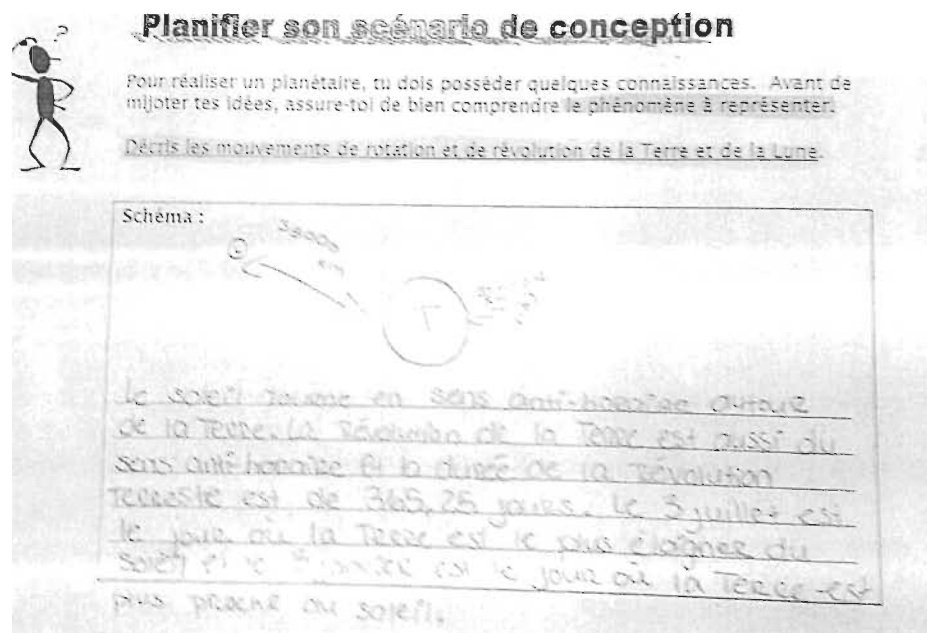 ?
Planifier son scénario de conception
Pour réaliser un planétaire, tu dois posséder quelques connaissances. Avant de
mijoter tes idées, assure-toi de bien comprendre le phénomène à représenter.
Décris les mouvements de rotation et de révolution de la Terre et de la Lune.
Schéma :
km
T
Le soleil tourne en sens anti-horaire autour
de la Terre. La Révolution de la Terre est aussi du
sens anti-horaire et la durée de la Révolution
Terreste est de 365,25 jours. Le 3 juillet est
le jour où la Terre est le plus éloigner du
soleil et le est le jour où la Terre est
plus proche du soleil.